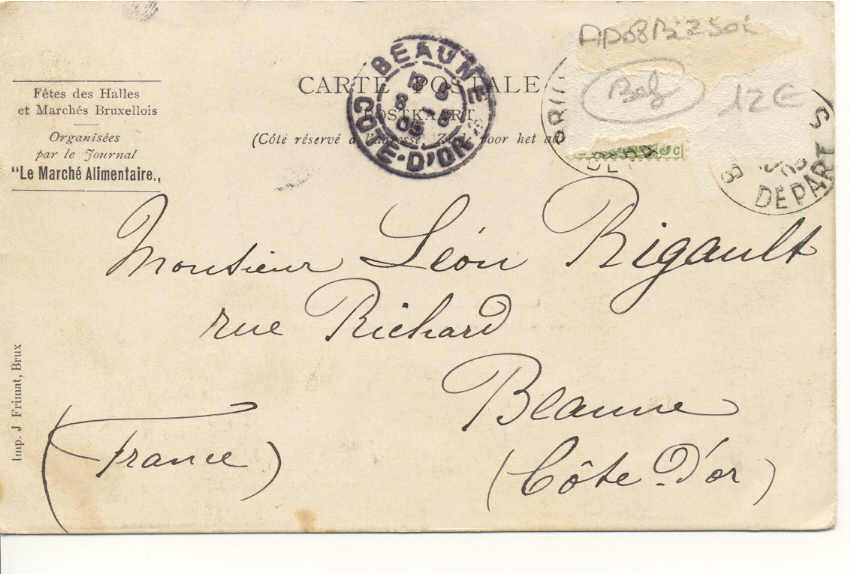 Fêtes des Halles
et Marchés Bruxellois
Organisées
par le Journal
"Le Marché Alimentaire.,
CARTE POSTALE
POSTKAART
(Côté réservé à l'adresse. Zijde voor het
BEAUNE
COTE-D'OR
Belg
12€
DEPART
Monsieur Léon Rigault
rue Richard
Beaune
(Côte-d'or)
(France)
Imp. J Frimat, Brux